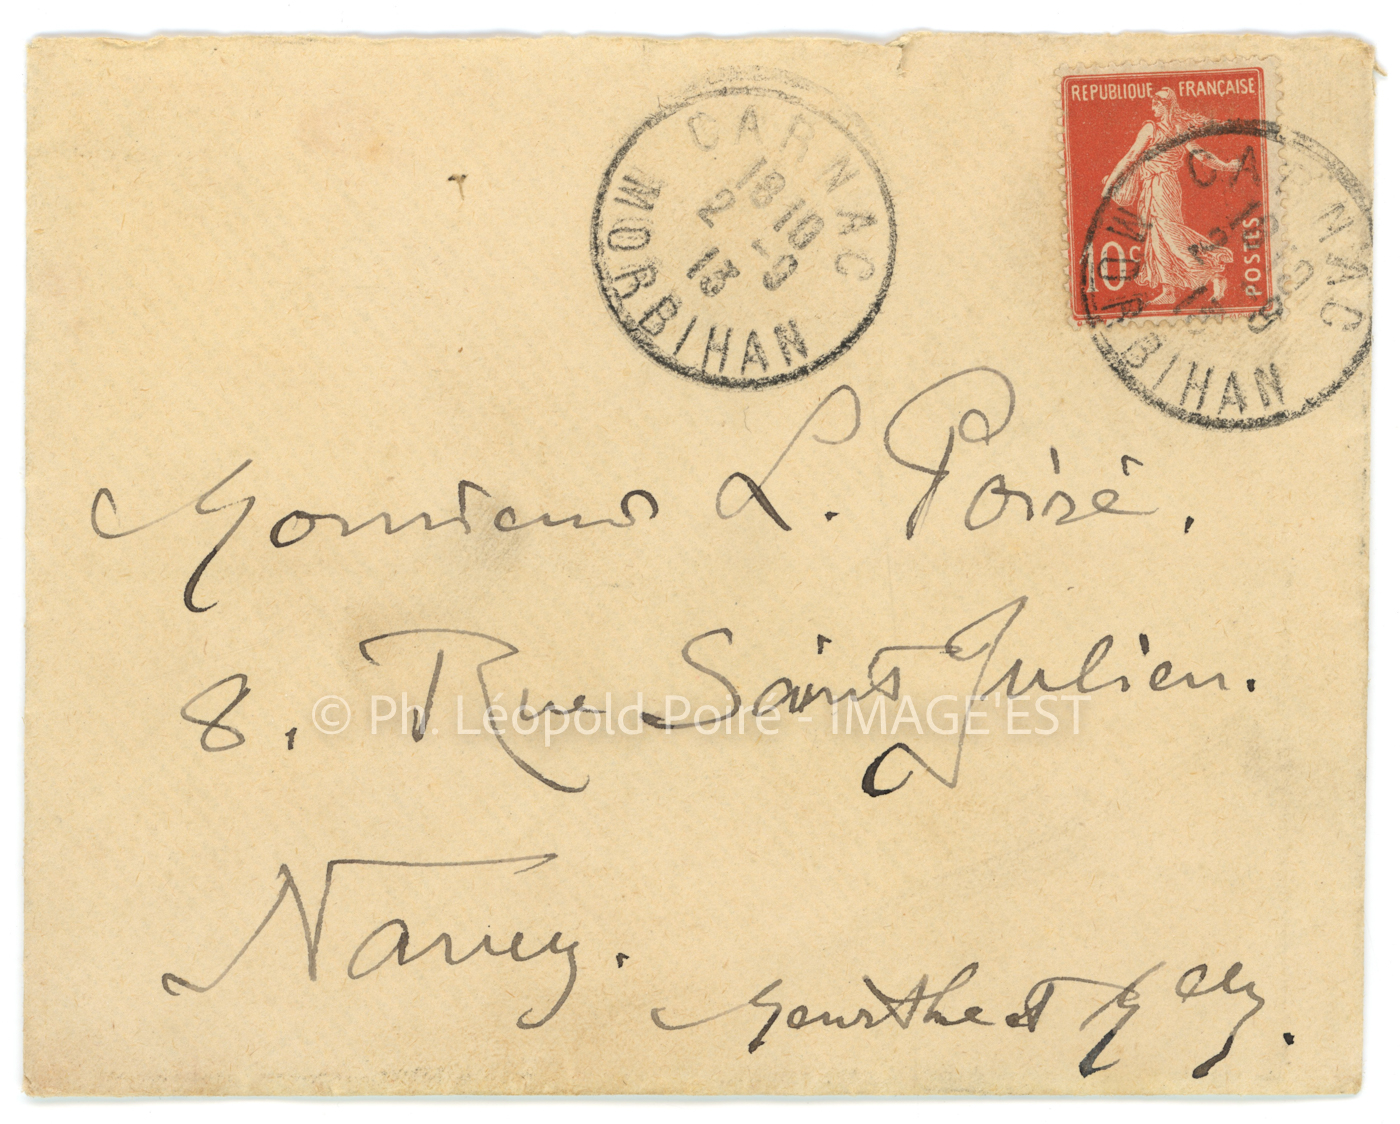 REPUBLIQUE FRANÇAISE
10c
POSTES
CARNAC
18 10
2 - 9
13
MORBIHAN
CARNAC
18 10
2 - 9
13
MORBIHAN
Monsieur L. Poiré.
8. Rue Saint Julien.
© Ph. Léopold Poiré - IMAGE'EST
Nancy.
Meurthe et Mlle.